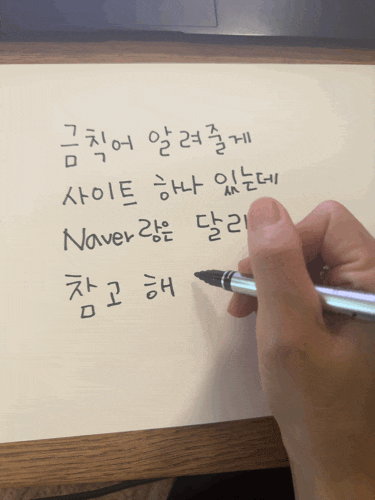 금칙어 알려줄게
사이트 하나 있는데
Naver랑은 달리
참고 해